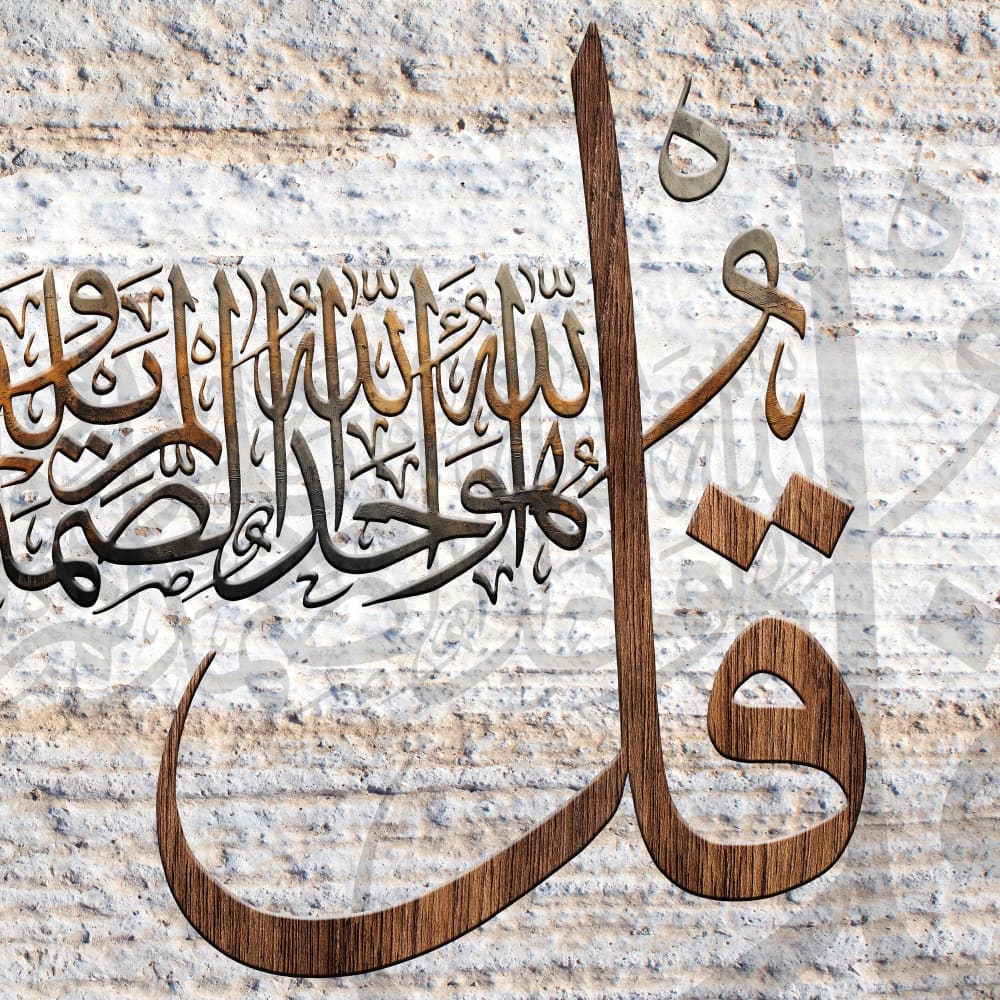 قُلْ هُوَ اللَّهُ أَحَدٌ اللَّهُ الصَّمَدُ لَمْ يَلِدْ وَ